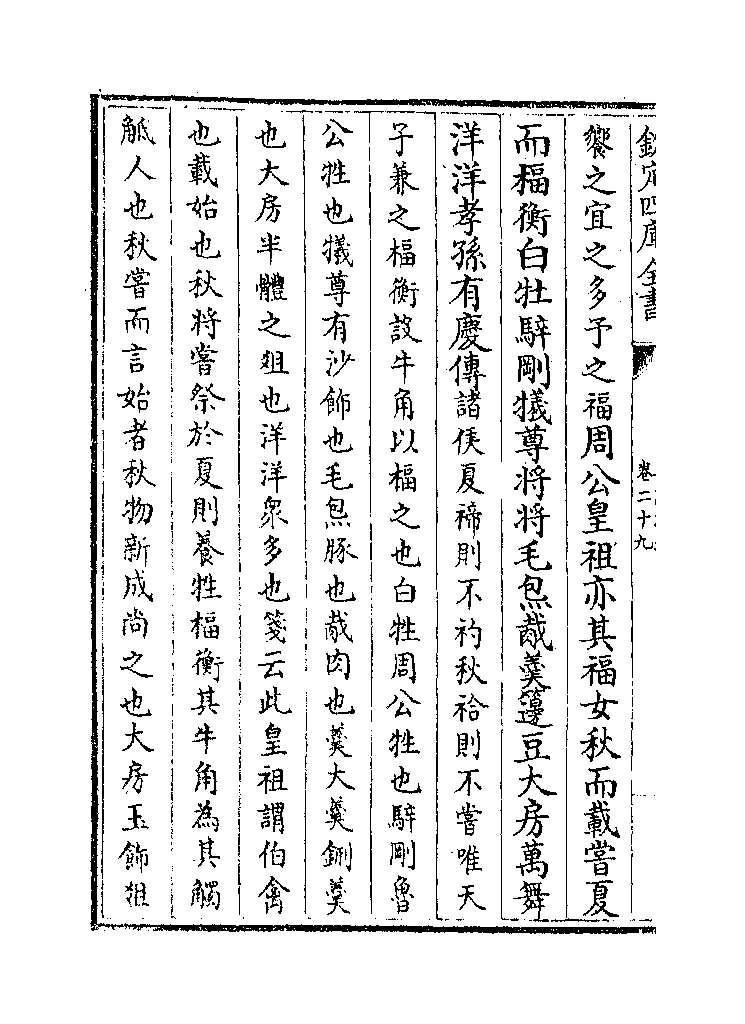 欽定四庫全書
卷二十九
饗之宜之多予之福周公皇祖亦其福女秋而載嘗夏
而楅衡白牡騂剛犧尊將將毛炰胾羹籩豆大房萬舞
洋洋孝孫有慶傳諸侯夏禘則不礿秋祫則不嘗唯天
子兼之楅衡設牛角以楅之也白牲周公牲也騂剛魯
公牲也犧尊有沙飾也毛炰豚也胾肉也羹大羹鉶羹
也大房半體之俎也洋洋衆多也箋云此皇祖謂伯禽
也載始也秋將嘗祭於夏則養牲楅衡其牛角為其觸
觝人也秋嘗而言始者秋物新成尚之也大房玉飾俎